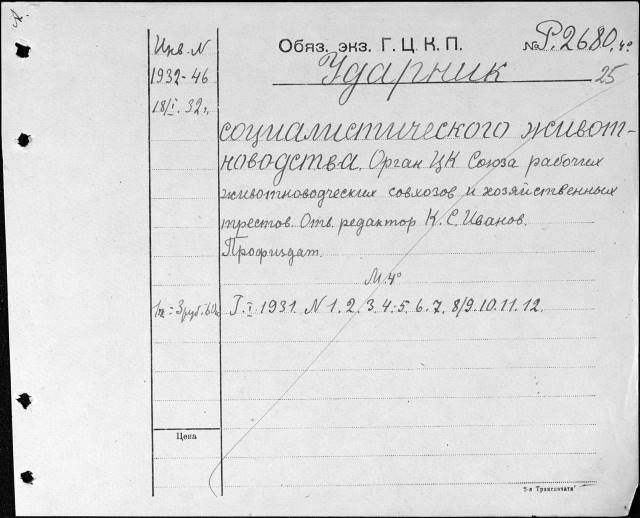 Инв. N
1932-46
18/I. 32 г.
Обяз. экз. Г. Ц. К. П.
№ Р.2680. 4°
Ударник 25
социалистического живот-
новодства. Орган ЦК Союза рабочих
животноводческих совхозов и хозяйственных
трестов. Отв. редактор К. С. Иванов.
Профиздат.
М. 4°
3 руб. 60к
Г. I. 1931. N 1. 2. 3. 4. 5. 6. 7. 8/9. 10. 11. 12.
Цена